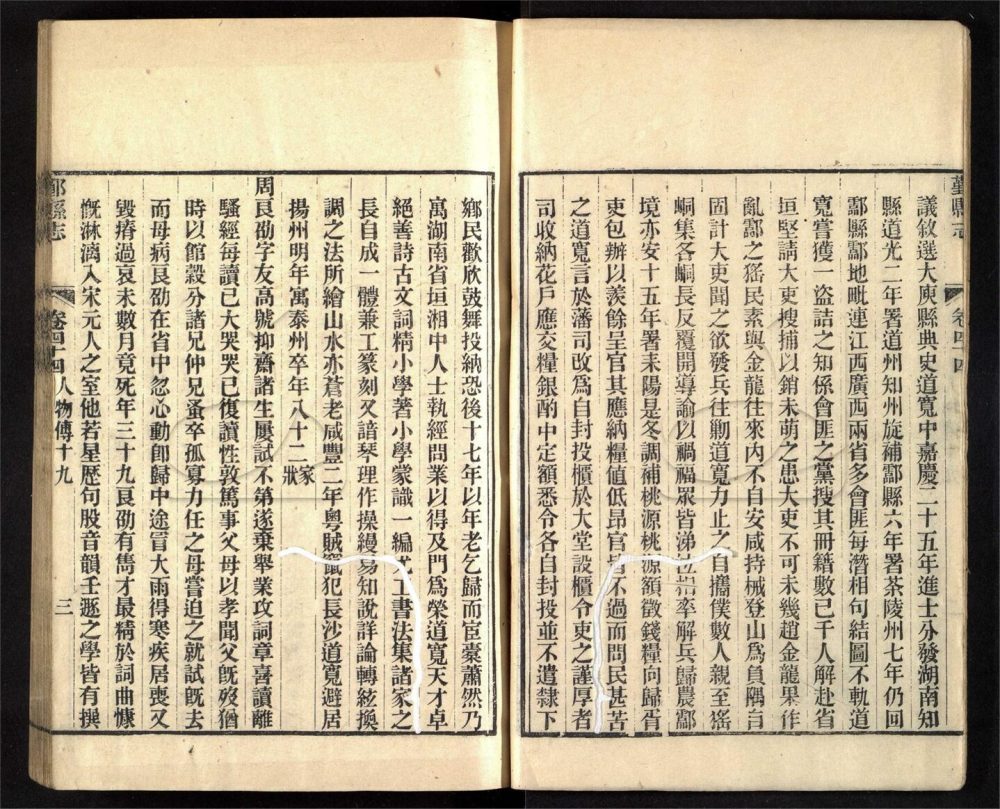 鄞縣志
卷四十四
議敘選大庾縣典史道寬中嘉慶二十五年進士分發湖南知
縣道光二年署道州知州旋補酃縣六年署茶陵州七年仍回
酃縣酃地毗連江西廣西兩省多會匪每潛相句結圖不軌道
寬嘗獲一盜詰之知係會匪之黨搜其冊籍數已千人解赴省
垣堅請大吏搜捕以銷未萌之患大吏不可未幾趙金龍果作
亂酃之猺民素與金龍往來內不自安咸持械登山為負隅
固計大吏聞之欲發兵往勦道寬力止之自攜僕數人親至猺
峒集各峒長反覆開導諭以禍福眾皆涕泣率解兵歸農酃
境亦安十五年署耒陽是冬調補桃源桃源額徵錢糧向歸胥
吏包辦以羨餘呈官其應納糧值低昂官不過而問民甚苦
之道寬言於藩司改為自封投櫃於大堂設櫃令吏之謹厚者
司收納花戶應交糧銀酌中定額悉令各自封投並不遣隸下
鄉民歡欣鼓舞投納恐後十七年以年老乞歸而宦橐蕭然乃
寓湖南省垣湘中人士執經問業以得及門為榮道寬天才卓
絕善詩古文詞精小學著小學蒙識一編尤工書法集諸家之
長自成一體兼工篆刻又諳琴理作操縵易知說詳論轉絃換
調之法所繪山水亦蒼老咸豐二年粵賊竄犯長沙道寬避居
揚州明年寓泰州卒年八十二家狀
周艮劭字友高號抑齋諸生屢試不第遂棄舉業攻詞章喜讀離
騷經每讀已大哭哭已復讀性敦篤事父母以孝聞父既歿猶
時以館穀分諸兄仲兄蚤卒孤寡力任之母嘗迫之就試既去
而母病艮劭在省中忽心動卽歸中途冒大雨得寒疾居喪又
毀瘠過哀未數月竟死年三十九艮劭有雋才最精於詞曲慷
慨淋漓入宋元人之室他若星歷句股音韻壬遁之學皆有撰
鄞縣志
卷四十四
人物傳十九
三